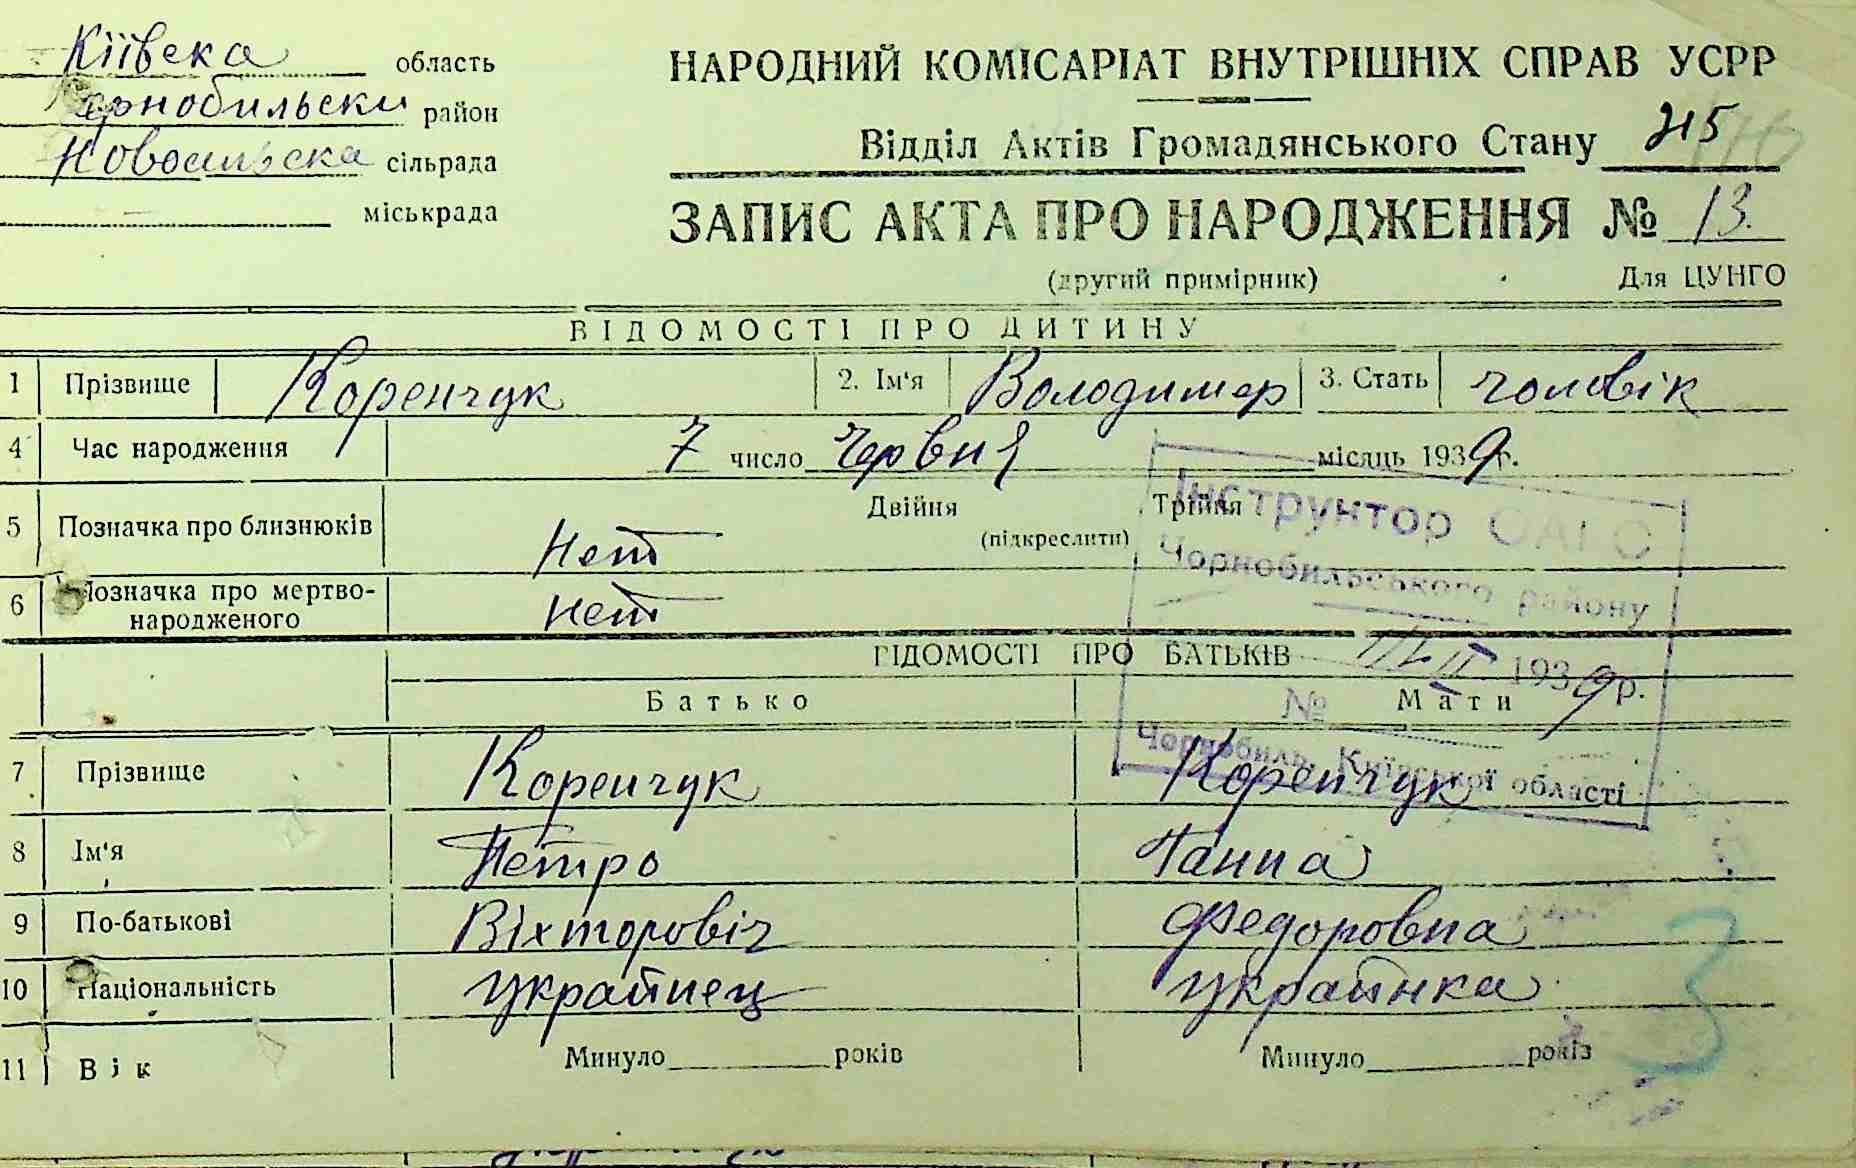 Кіівска область
Чернобильски район
Новосильска сільрада
міськрада
НАРОДНИЙ КОМІСАРІАТ ВНУТРІШНІХ СПРАВ УСРР
Відділ Актів Громадянського Стану
ЗАПИС АКТА ПРО НАРОДЖЕННЯ № 13.
(другий примірник) Для ЦУНГО
ВІДОМОСТІ ПРО ДИТИНУ
1 Прізвище Коренчук 2. Ім'я Володимер 3. Стать чоловік
4 Час народження 7 число червня місяць 1939 г.
5 Позначка про близнюків Нет Двійня Трійня (підкреслити)
6 Позначка про мертвонародженого нет
Інструктор ОАГС
Чорнобильського району
1939 р.
№
Чорнобиль, Київської області
ВІДОМОСТІ ПРО БАТЬКІВ
Батько Мати
7 Прізвище Коренчук Коренчук
8 Ім'я Петро Ганна
9 По-батькові Віхторовіч Федоровна
10 Національність украйнец украйнка
11 Вік Минуло років Минуло років
3